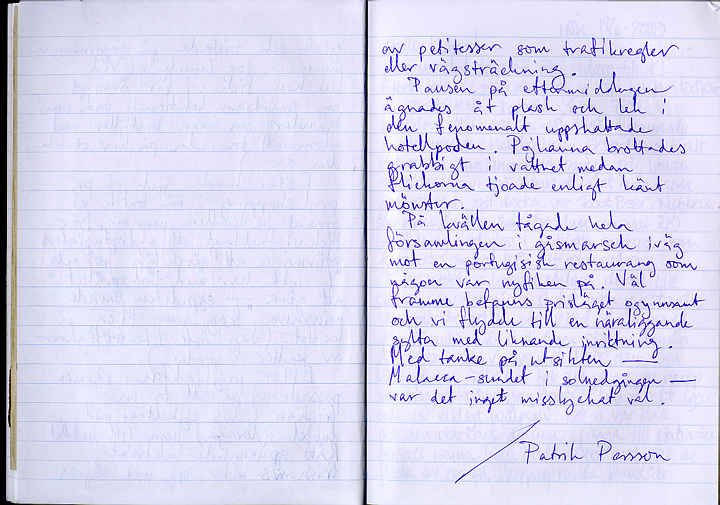 av petitesser som trafikregler
eller vägsträckning.
Pausen på eftermiddagen
ägnades åt plask och lek i
den fenomenalt uppskattade
hotellpoolen. Pojkarna brottades
grabbigt i vattnet medan
flickorna tjoade enligt känt
mönster.
På kvällen tågade hela
församlingen i gåsmarsch iväg
mot en portugisisk restaurang som
någon var nyfiken på. Väl
framme befanns prisläget ogynnsamt
och vi flydde till en näraliggande
sylta med liknande inriktning.
Med tanke på utsikten —
Malacca-sundet i solnedgången —
var det inget misslyckat val.
Patrik Persson